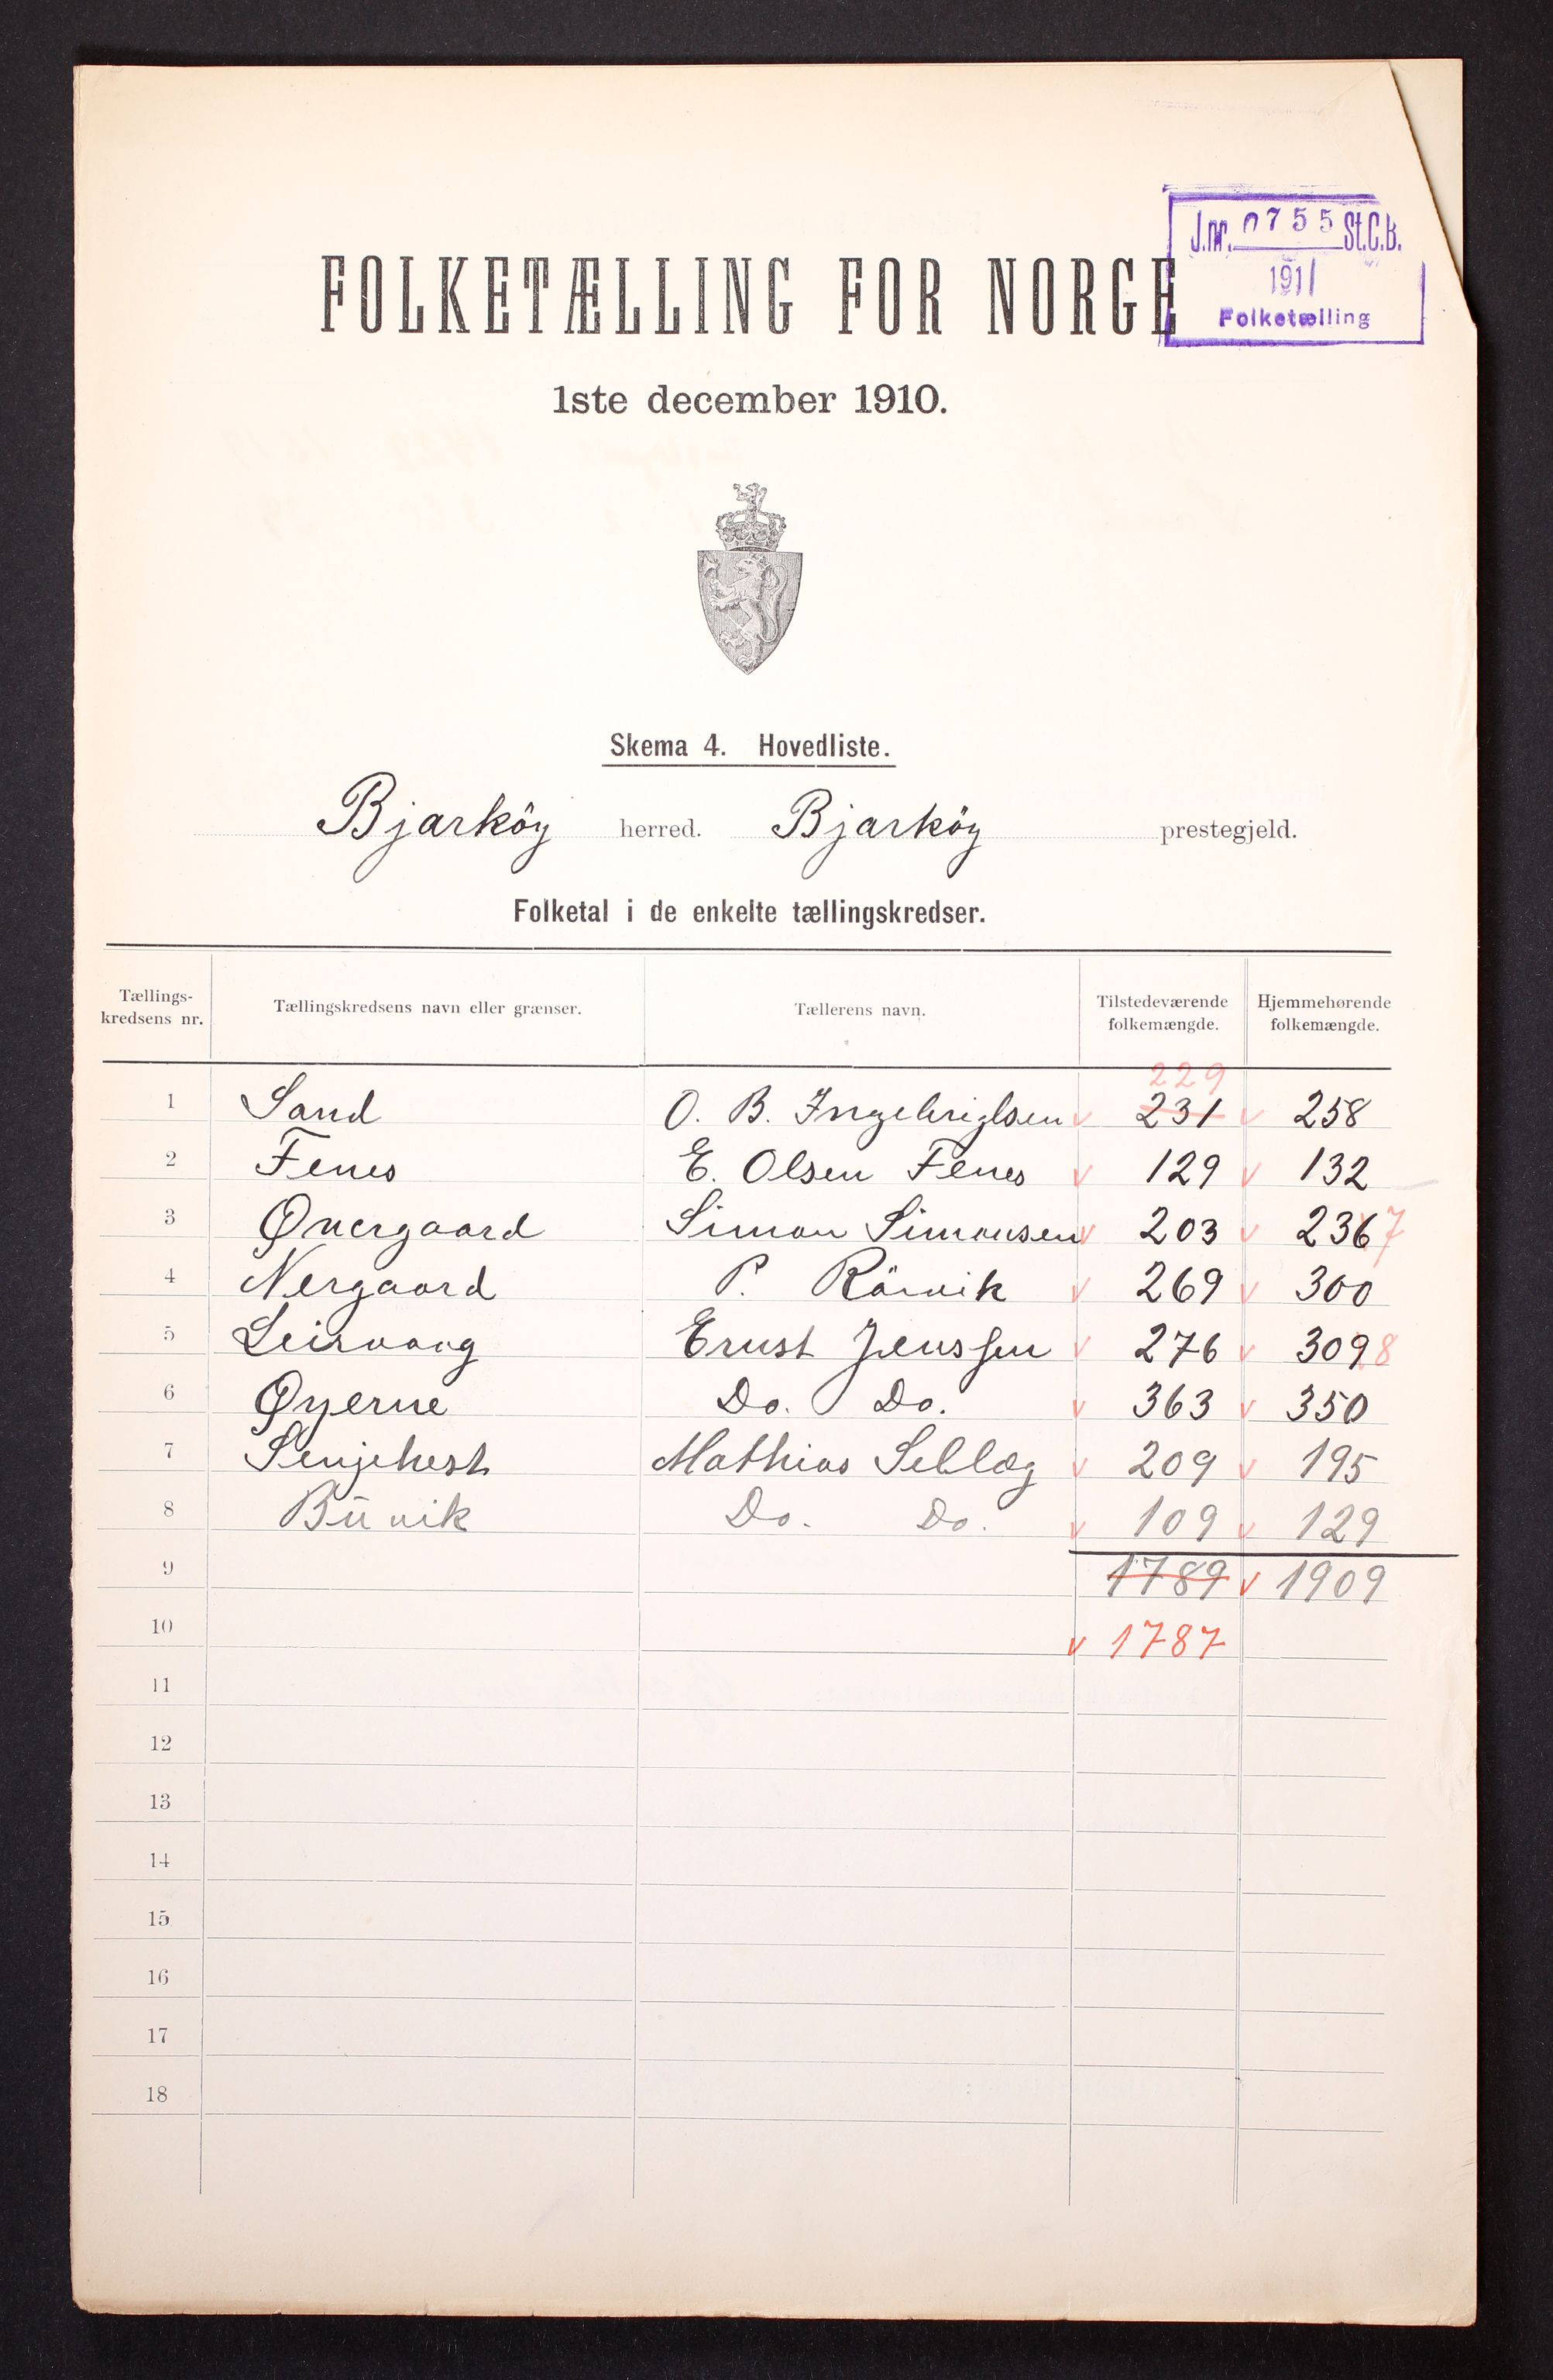 J.nr. 0755 St.C.B.
1911
Folketælling
FOLKETÆLLING FOR NORGE
1ste december 1910.
Skema 4. Hovedliste.
Bjarköy herred. Bjarköy prestegjeld.
Folketal i de enkelte tællingskredser.
Tællings-kredsens nr. Tællingskredsens navn eller grænser. Tællerens navn. Tilstedeværende folkemængde. Hjemmehørende folkemængde.
229
1 Sand O. B. Ingebrigtsen v 231 v 258
2 Fenes E. Olsen Fenes v 129 v 132
3 Øvergaard Simon Simonsen v 203 v 236 7
4 Nergaard P. Rörvik v 269 v 300
5 Leirvaag Ernst Jenssen v 276 v 309 8
6 Øyerne Do. Do. v 363 v 350
7 Senjehest Mathias Selläg v 209 v 195
8 Büvik Do. Do. v 109 v 129
9 1789 v 1909
10 v 1787
11
12
13
14
15
16
17
18